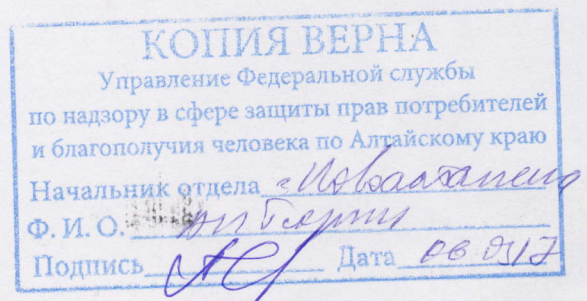 КОПИЯ ВЕРНА
Управление Федеральной службы
по надзору в сфере защиты прав потребителей
и благополучия человека по Алтайскому краю
Начальник отдела
Ф. И. О.
Подпись Дата